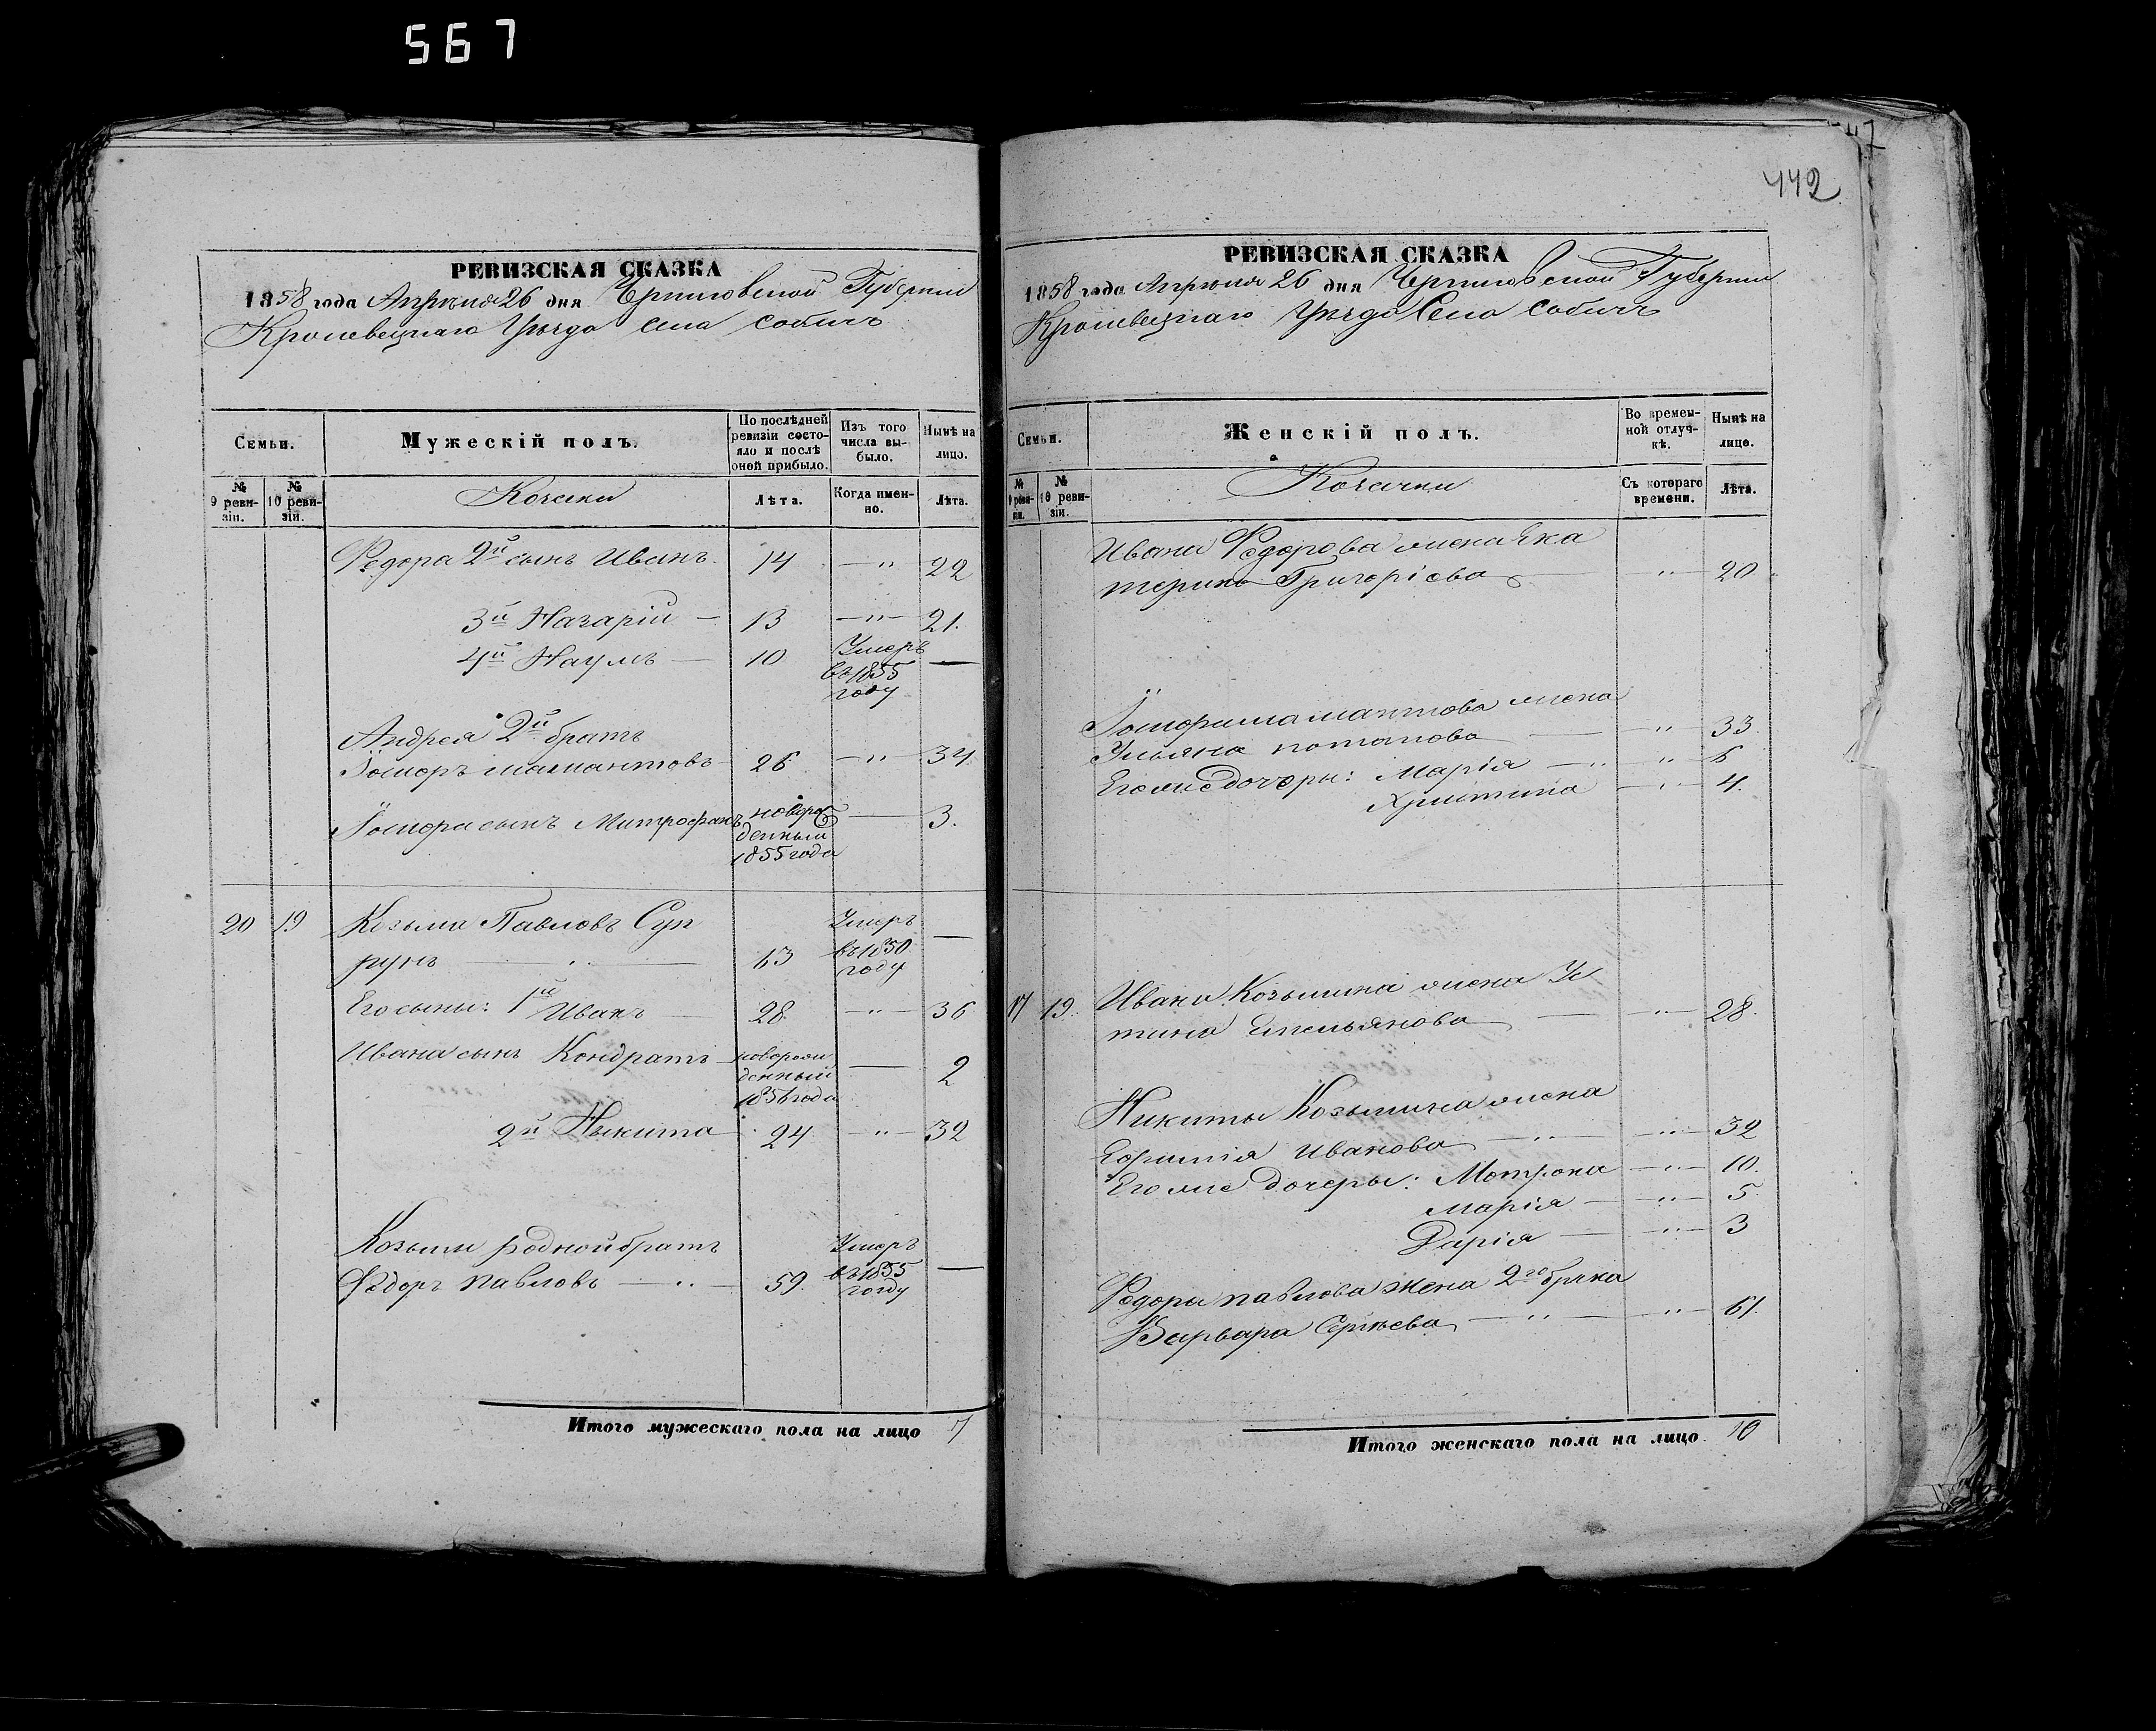 567
442
РЕВИЗСКАЯ СКАЗКА
1858 года Апрѣля 26 дня Черниговской Губерніи
Кролевецкаго Уѣзда Села Собичъ
Семьи.
Мужескій полъ.
По послѣдней ревизіи состояло и послѣ оной прибыло.
Изъ того числа выбыло.
Нынѣ на лицо.
№ 9 ревизіи.
№ 10 ревизіи.
Козаки
Лѣта.
Когда именно.
Лѣта.
Федора 2й сынъ Иванъ 14 — " 22
3й Назарій — 13 — " — 21.
4й Наумъ — 10 Умеръ въ 1855 году —
Андрея 2й братъ
26 — " — 34
сынъ Митрофанъ новорожденный 1855 года — 3.
20 19 Козьма Павловъ Суп
рунъ — 63 Умеръ въ 1850 году —
Его сыны: 1й Иванъ — 28 — " — 36
Ивана сынъ Кондратъ новорожденный 1856 года — 2
2й Никита 24 — " — 32
Козьмы родной братъ
Федоръ Павловъ — " — 59. Умеръ въ 1855 году —
Итого мужескаго пола на лицо 7
РЕВИЗСКАЯ СКАЗКА
1858 года Апрѣля 26 дня Черниговской Губерніи
Кролевецкаго Уѣзда Села Собичъ
Семьи.
Женскій полъ.
Во временной отлучкѣ.
Нынѣ на лицо.
№ 9 ревизіи.
№ 10 ревизіи.
Козачки
Съ котораго времени.
Лѣта.
Ивана Федорова жена Ека
терина Григоріева — " — 20
жена
Ульяна Потапова — " — 33.
Его же дочери: Марія — " 6
Христина — " — 4.
17 19. Ивана Козьмина жена Ус
тина Емельянова — " — 28.
Никиты Козьмина жена
Ефимія Иванова — " — 32
Его же дочери: Мотрона — " — 10.
Марія — " — 5.
Дарія — " — 3
Федора Павлова жена 2го брака
Варвара Сергѣева — " — 61.
Итого женскаго пола на лицо. 10